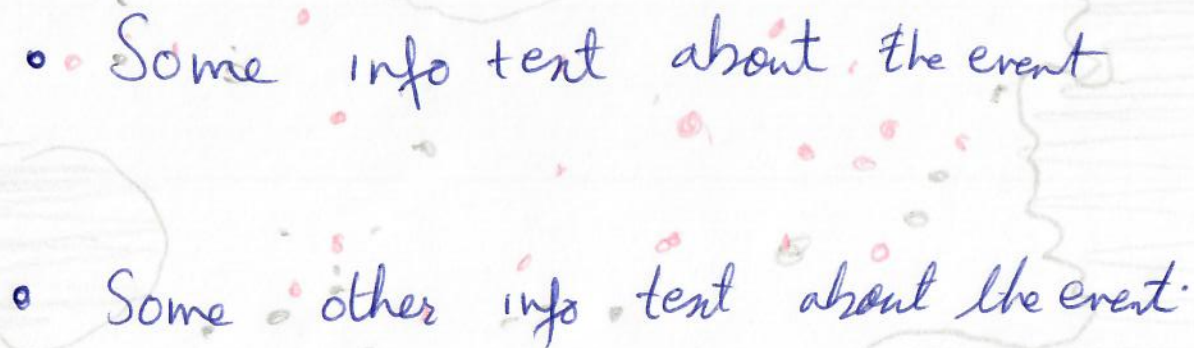 • Some info text about the event
• Some other info text about the event.